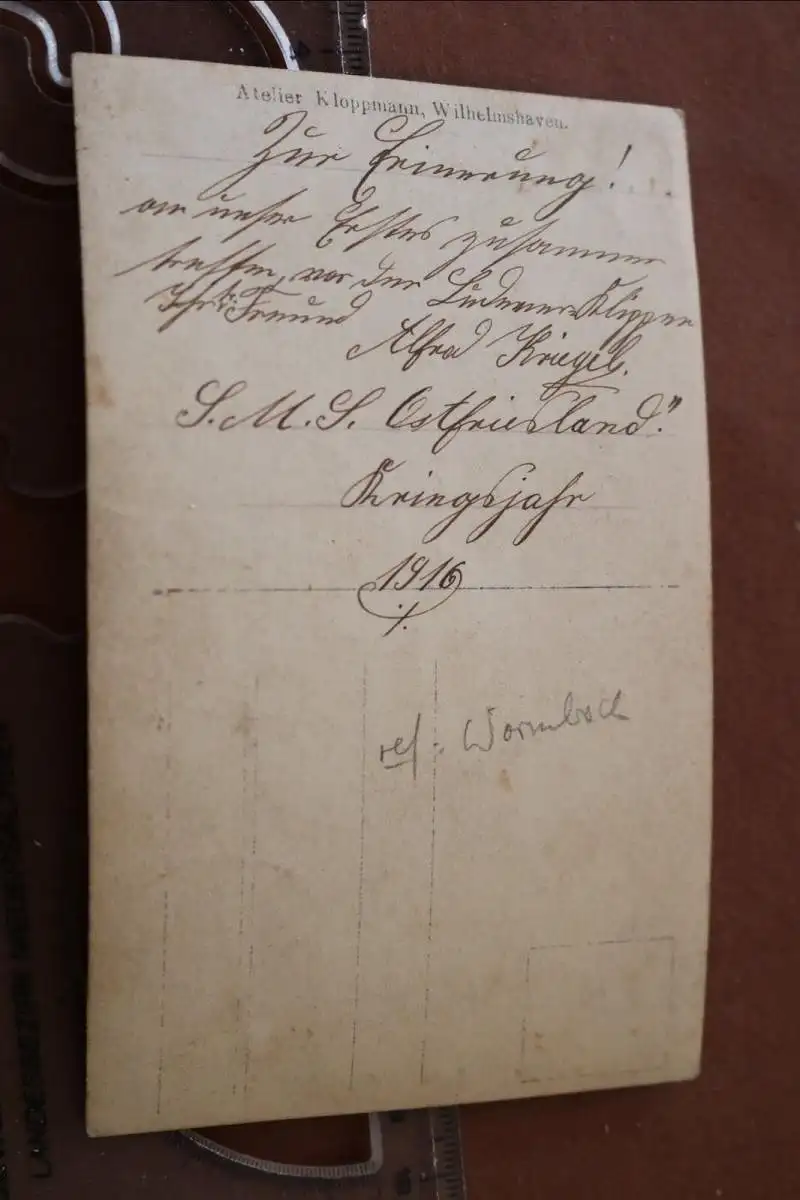 Atelier Kloppmann, Wilhelmshaven.
Zur Erinerung!
an unser Erstes zusammen
treffen, vor der Klippen
Ihr Freund
Alfred Kriegel.
S.M.S. Ostfriesland."
Kriegsjahr
1916